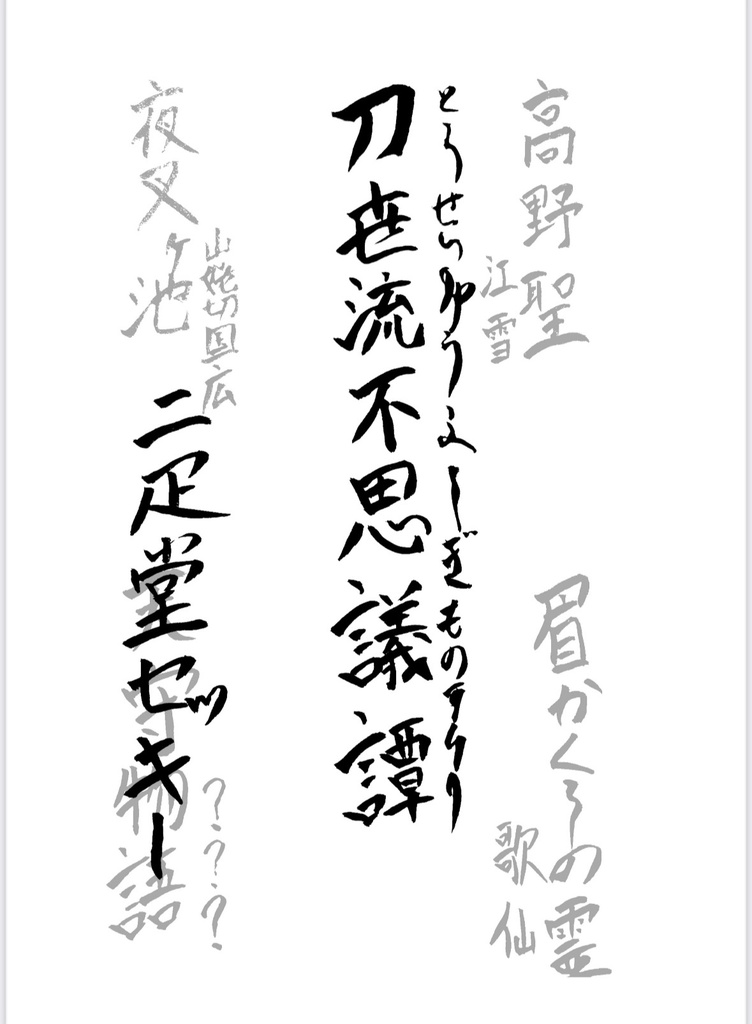 高野聖
江雪
眉かくしの霊
歌仙
とうせいりゆうふしぎものがたり
刀世流不思議譚
山姥切国広
夜叉ヶ池
二疋堂セッキー
???
天守物語